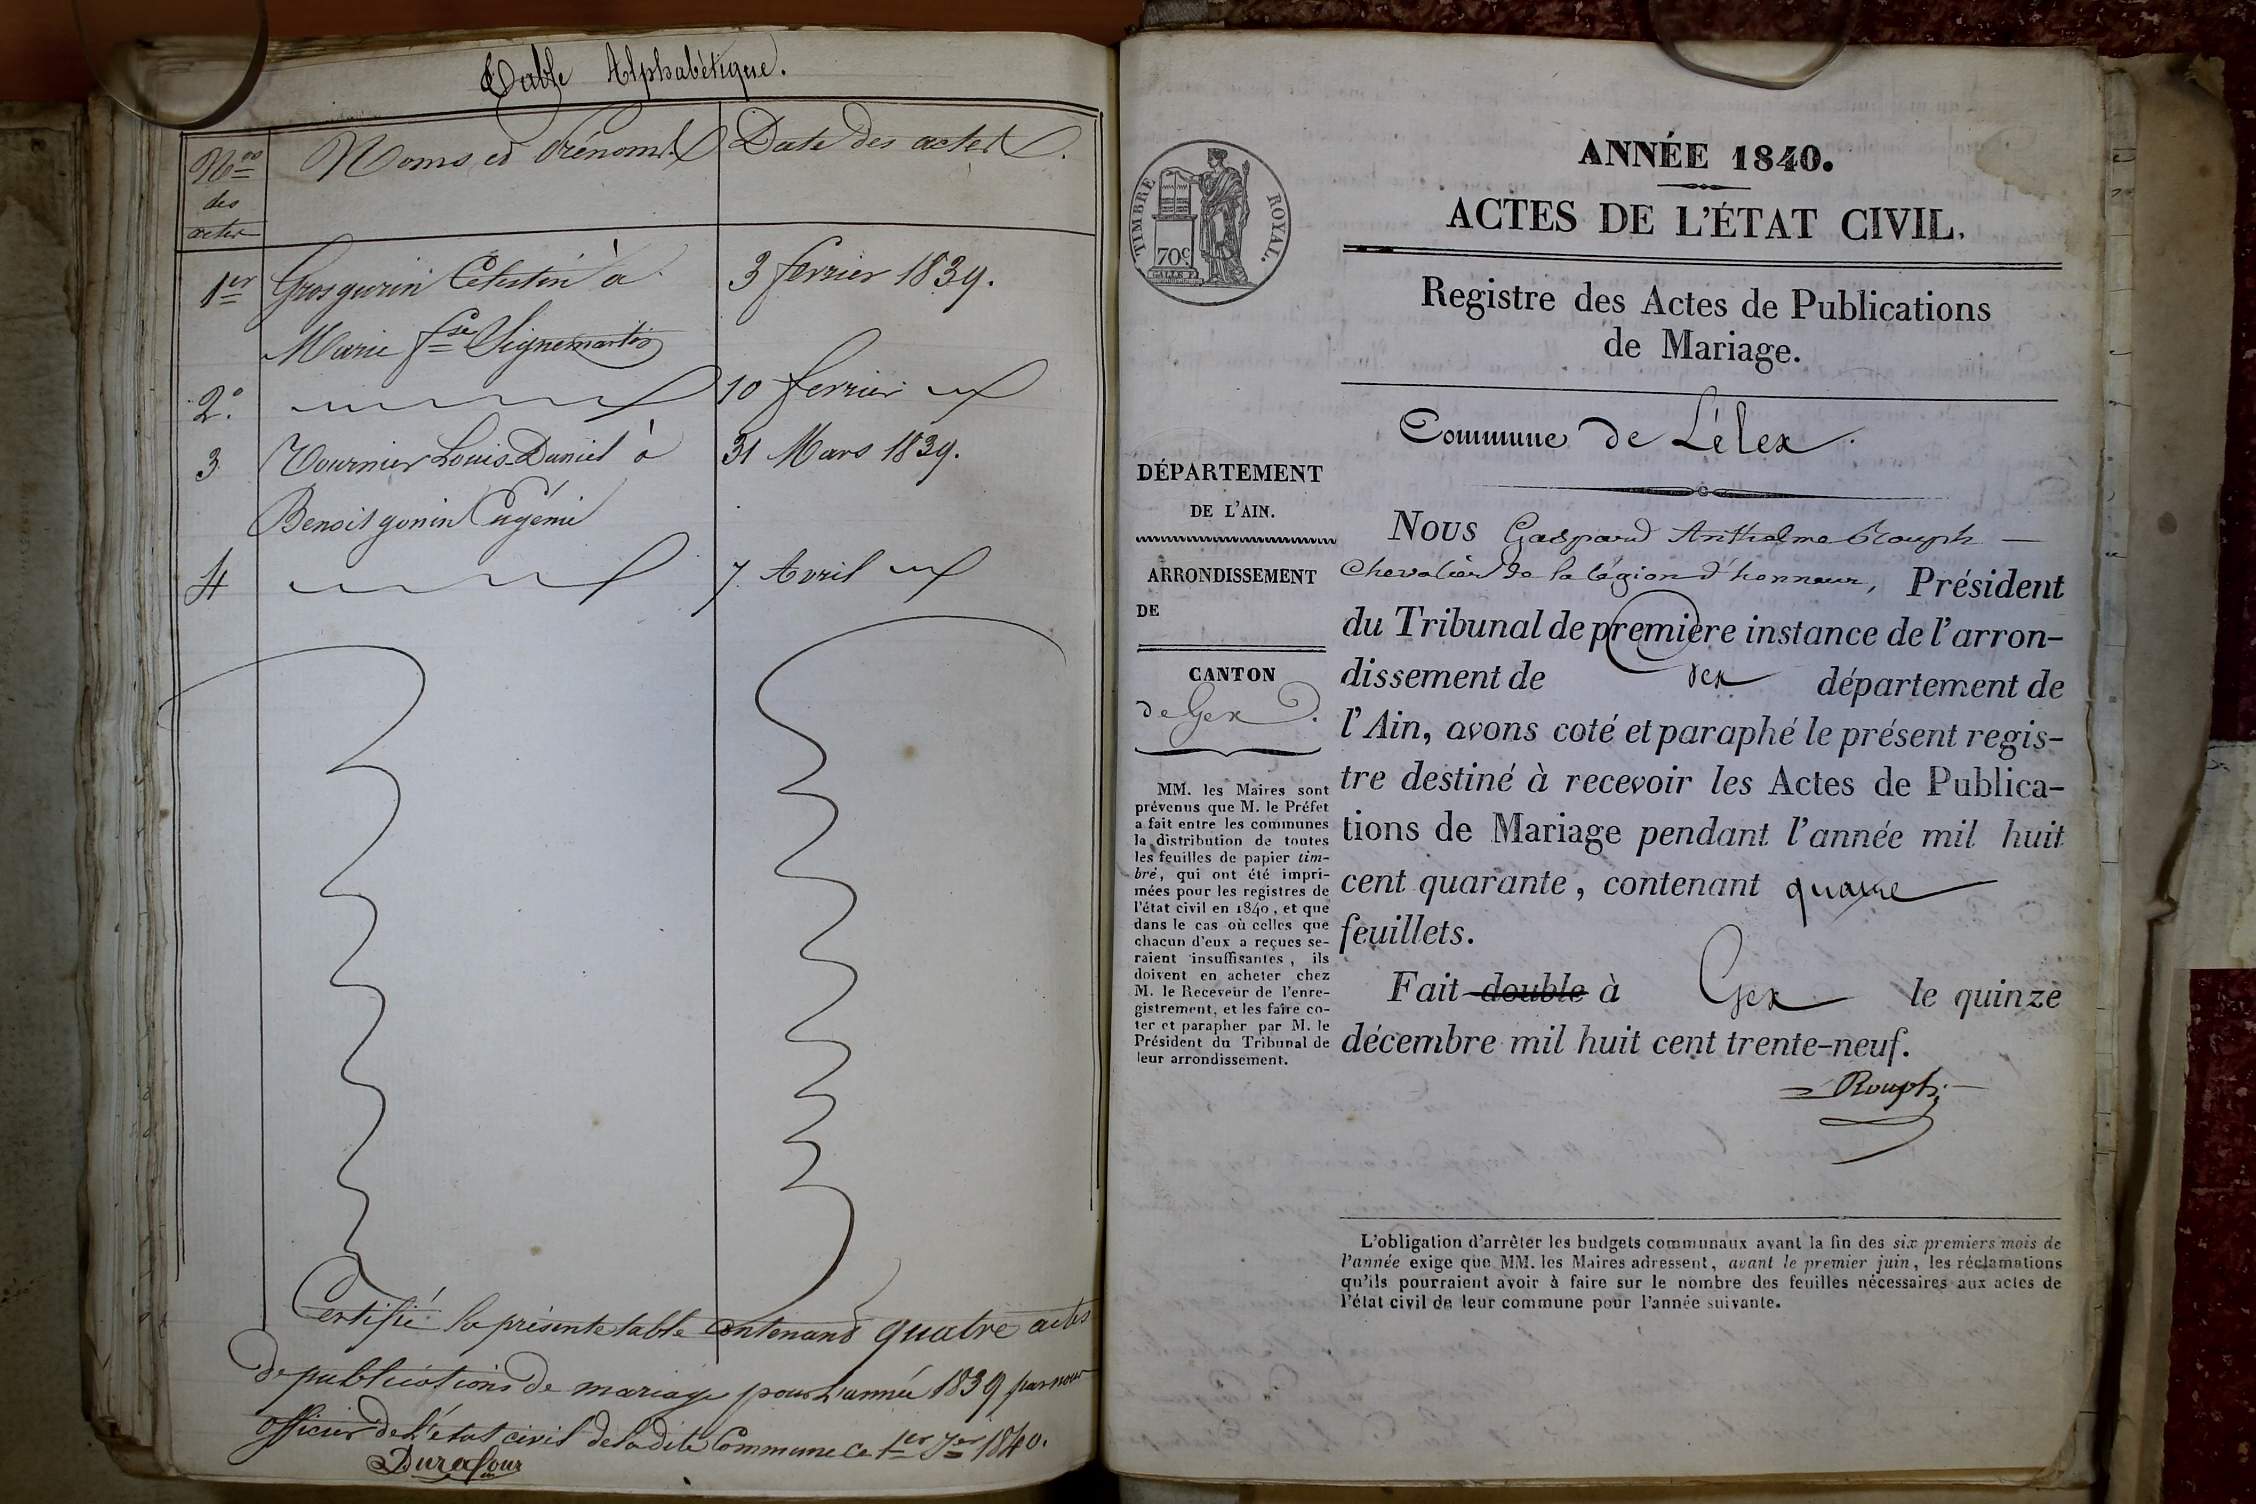 Table Alphabétique.
Nos des actes
Noms et Prénoms
Date des actes.
1er Grosgurin Célestin à 3 fevrier 1839.
Marie fse Vignemartin
2° 10 fevrier
3 Tournier Louis Daniel à 31 Mars 1839.
Benoit gonin Eugénie
4 7 Avril
Certifié la présente table contenant quatre actes
de publications de mariage pour l'année 1839 par nous
officier de l'état civil de la dite Commune ce 1er Jer 1840.
Durafour
TIMBRE ROYAL.
70c
ANNÉE 1840.
ACTES DE L'ÉTAT CIVIL.
Registre des Actes de Publications
de Mariage.
Commune de Lélex.
DÉPARTEMENT
DE L'AIN.
ARRONDISSEMENT
DE
CANTON
de Gex.
MM. les Maires sont
prévenus que M. le Préfet
a fait entre les communes
la distribution de toutes
les feuilles de papier tim-
bré, qui ont été impri-
mées pour les registres de
l'état civil en 1840, et que
dans le cas où celles que
chacun d'eux a reçues se-
raient insuffisantes, ils
doivent en acheter chez
M. le Receveur de l'enre-
gistrement, et les faire co-
ter et parapher par M. le
Président du Tribunal de
leur arrondissement.
Nous Gaspard Anthelme Rouph
Chevalier de la légion d'honneur, Président
du Tribunal de première instance de l'arron-
dissement de Gex département de
l'Ain, avons coté et paraphé le présent regis-
tre destiné à recevoir les Actes de Publica-
tions de Mariage pendant l'année mil huit
cent quarante, contenant quatre
feuillets.
Fait double à Gex le quinze
décembre mil huit cent trente-neuf.
Rouph
L'obligation d'arrêter les budgets communaux avant la fin des six premiers mois de
l'année exige que MM. les Maires adressent, avant le premier juin, les réclamations
qu'ils pourraient avoir à faire sur le nombre des feuilles nécessaires aux actes de
l'état civil de leur commune pour l'année suivante.